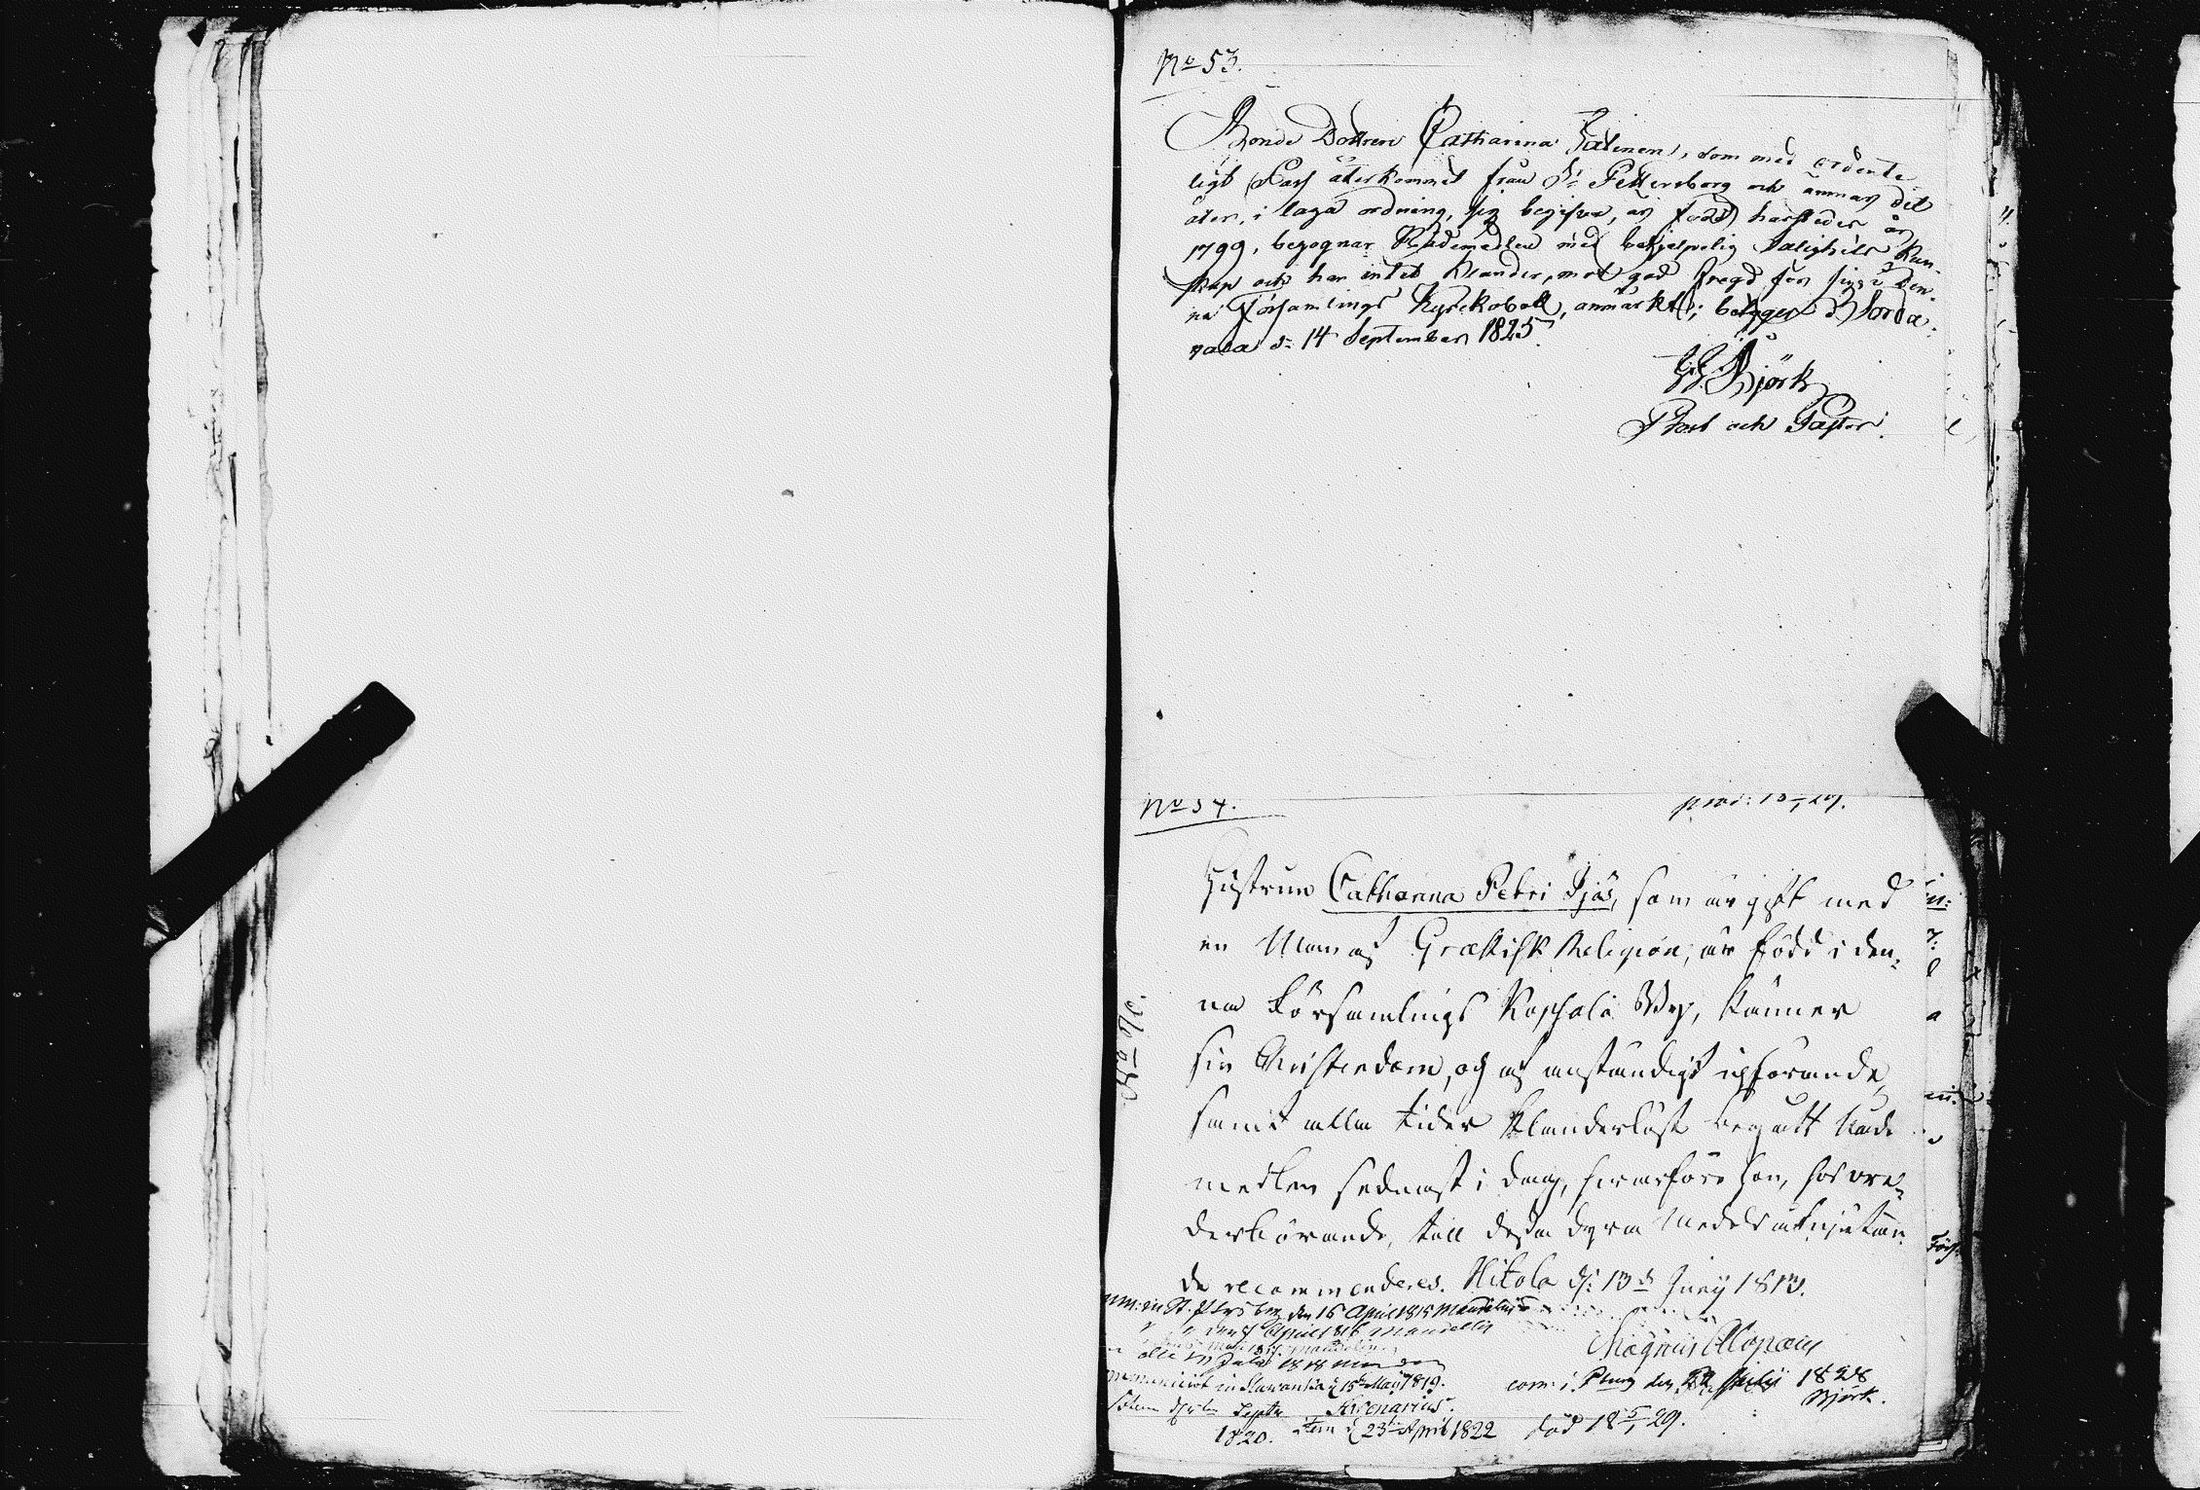 No 53.
Bonde Dottren Catharina Hatinen, som med ordente
ligt Pass återkommit från St Pettersborg och ämnar dit
åter, i laga ordning, sig begifva, är född härstädes år
1799, begagnar Nådemedlen med behjelpelig Salighets kun-
skap och har intet klander, mot god fregd för sig i den-
na Församlings Kyrckobok, anmärkt; betygar Sorda-
vala d: 14 September 1825.
Björk
Prost och Pastor.
No 54.
Hustrun Catharina Petri Ijäs, som är gift med
en Man af Grækisk Religion, är född i den-
na Församlings Kopsala By, känner
sin Christendom, och af anständigt upförande,
samt alla tider klanderlöst begått Nåde
medlen sednast i dag, hvarföre hon, hos ve-
derbörande, till dessa dyra Medels åtnjutan
de recommenderes. Hitola d: 13 Junij 1813.
Magnus Alopæus
den 16 April 1815 Mandelin
den 7 April 1816 Mandelin
1817. Mandelin
1818
in Slavanka d 15 Maij 1819.
Septr
1820. Item d 23 April 1822
com: i Pburg den 22 1828
Björk.
död 18 5/1 29.